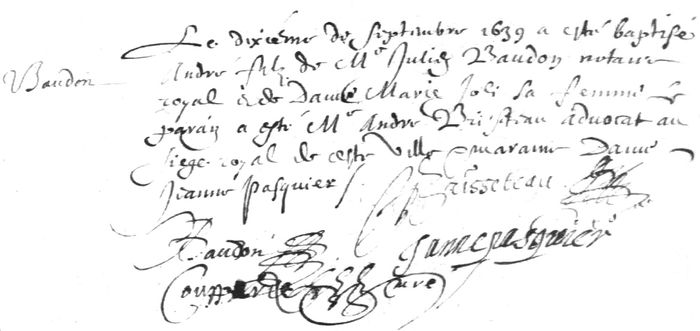 Le dixiéme de Septembre 1639 a esté baptisé
Baudon
André filz de Me Julien Baudon notaire
royal & de Dame Marie Joli sa femme Le
parain a esté Me André Brisseau advocat au
siege royal de ceste Ville & maraine Dame
Jeanne Pasquier
Baudon
Janne pasquier
curé